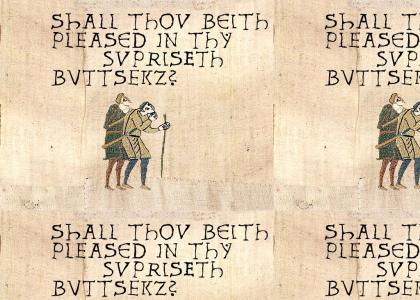 ShALL ThOV BEITh
PLEASED IN ThY
SVPRISETh
BVTTSEKZ?
ShALL
PLEASED
ShALL ThOV BEITh
PLEASED IN ThY
SVPRISETh
BVTTSEKZ?
ShALL
PLEASED